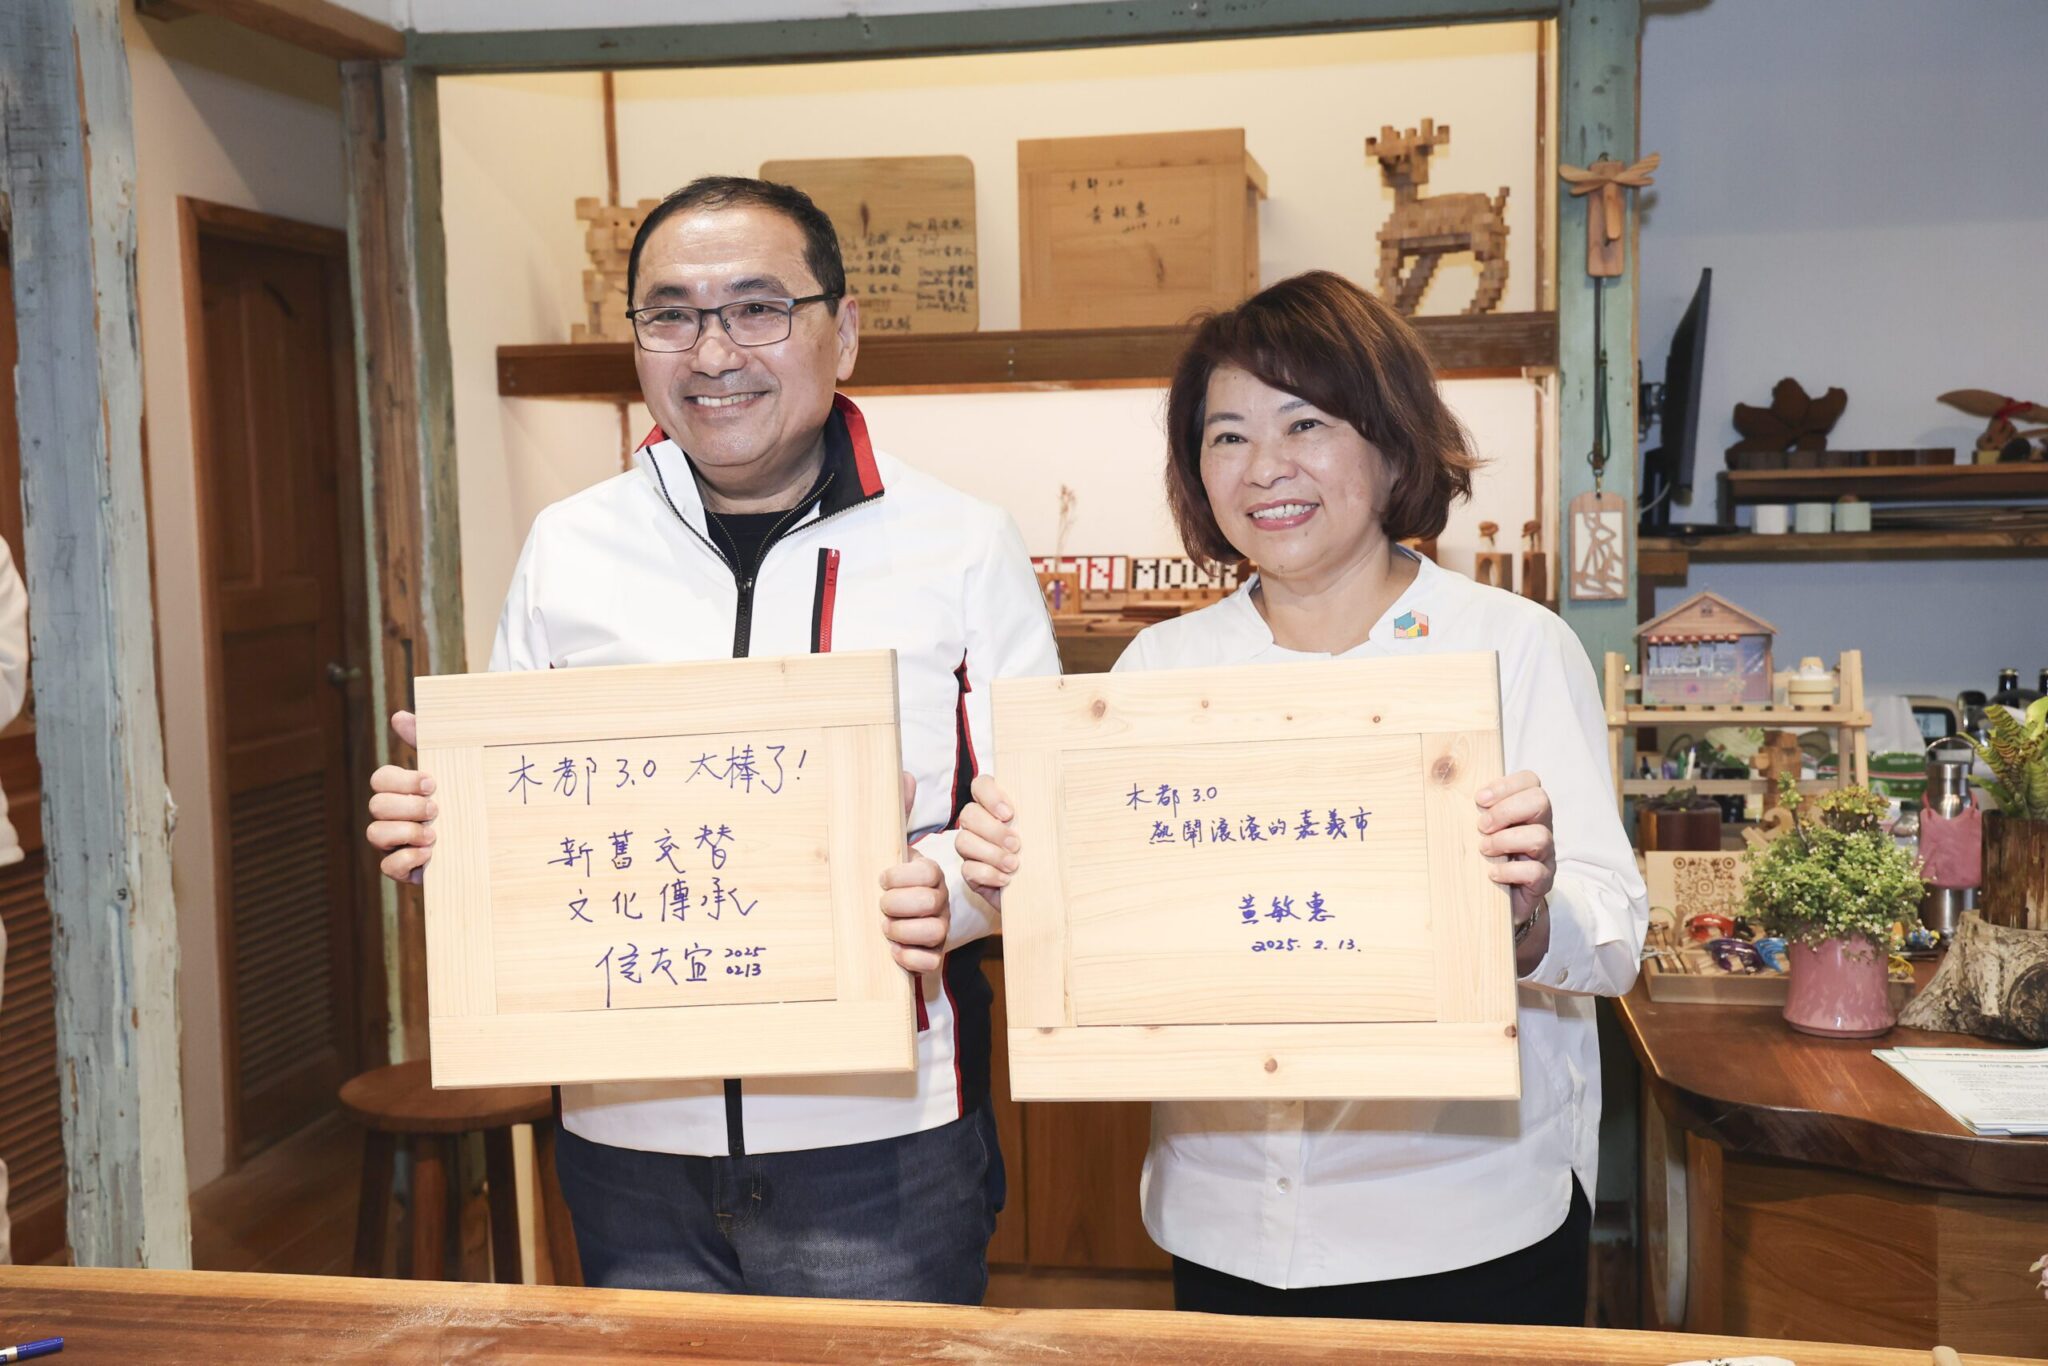 木都 3.0 太棒了!
新舊交替
文化傳承
侯友宜 2025
0213
木都 3.0
熱鬧滾滾的嘉義市
黃敏惠
2025. 2. 13.
木都 3.0
黃敏惠